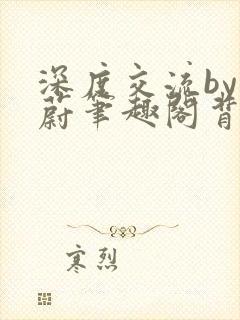 深度交流by
蔚笔趣阁背
寒烈